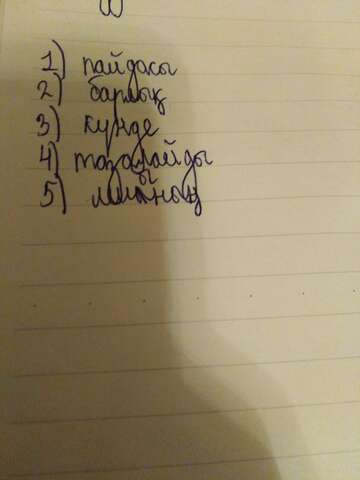 1) пайдасы
2) барлық
3) күнде
4) тазалайды
5)